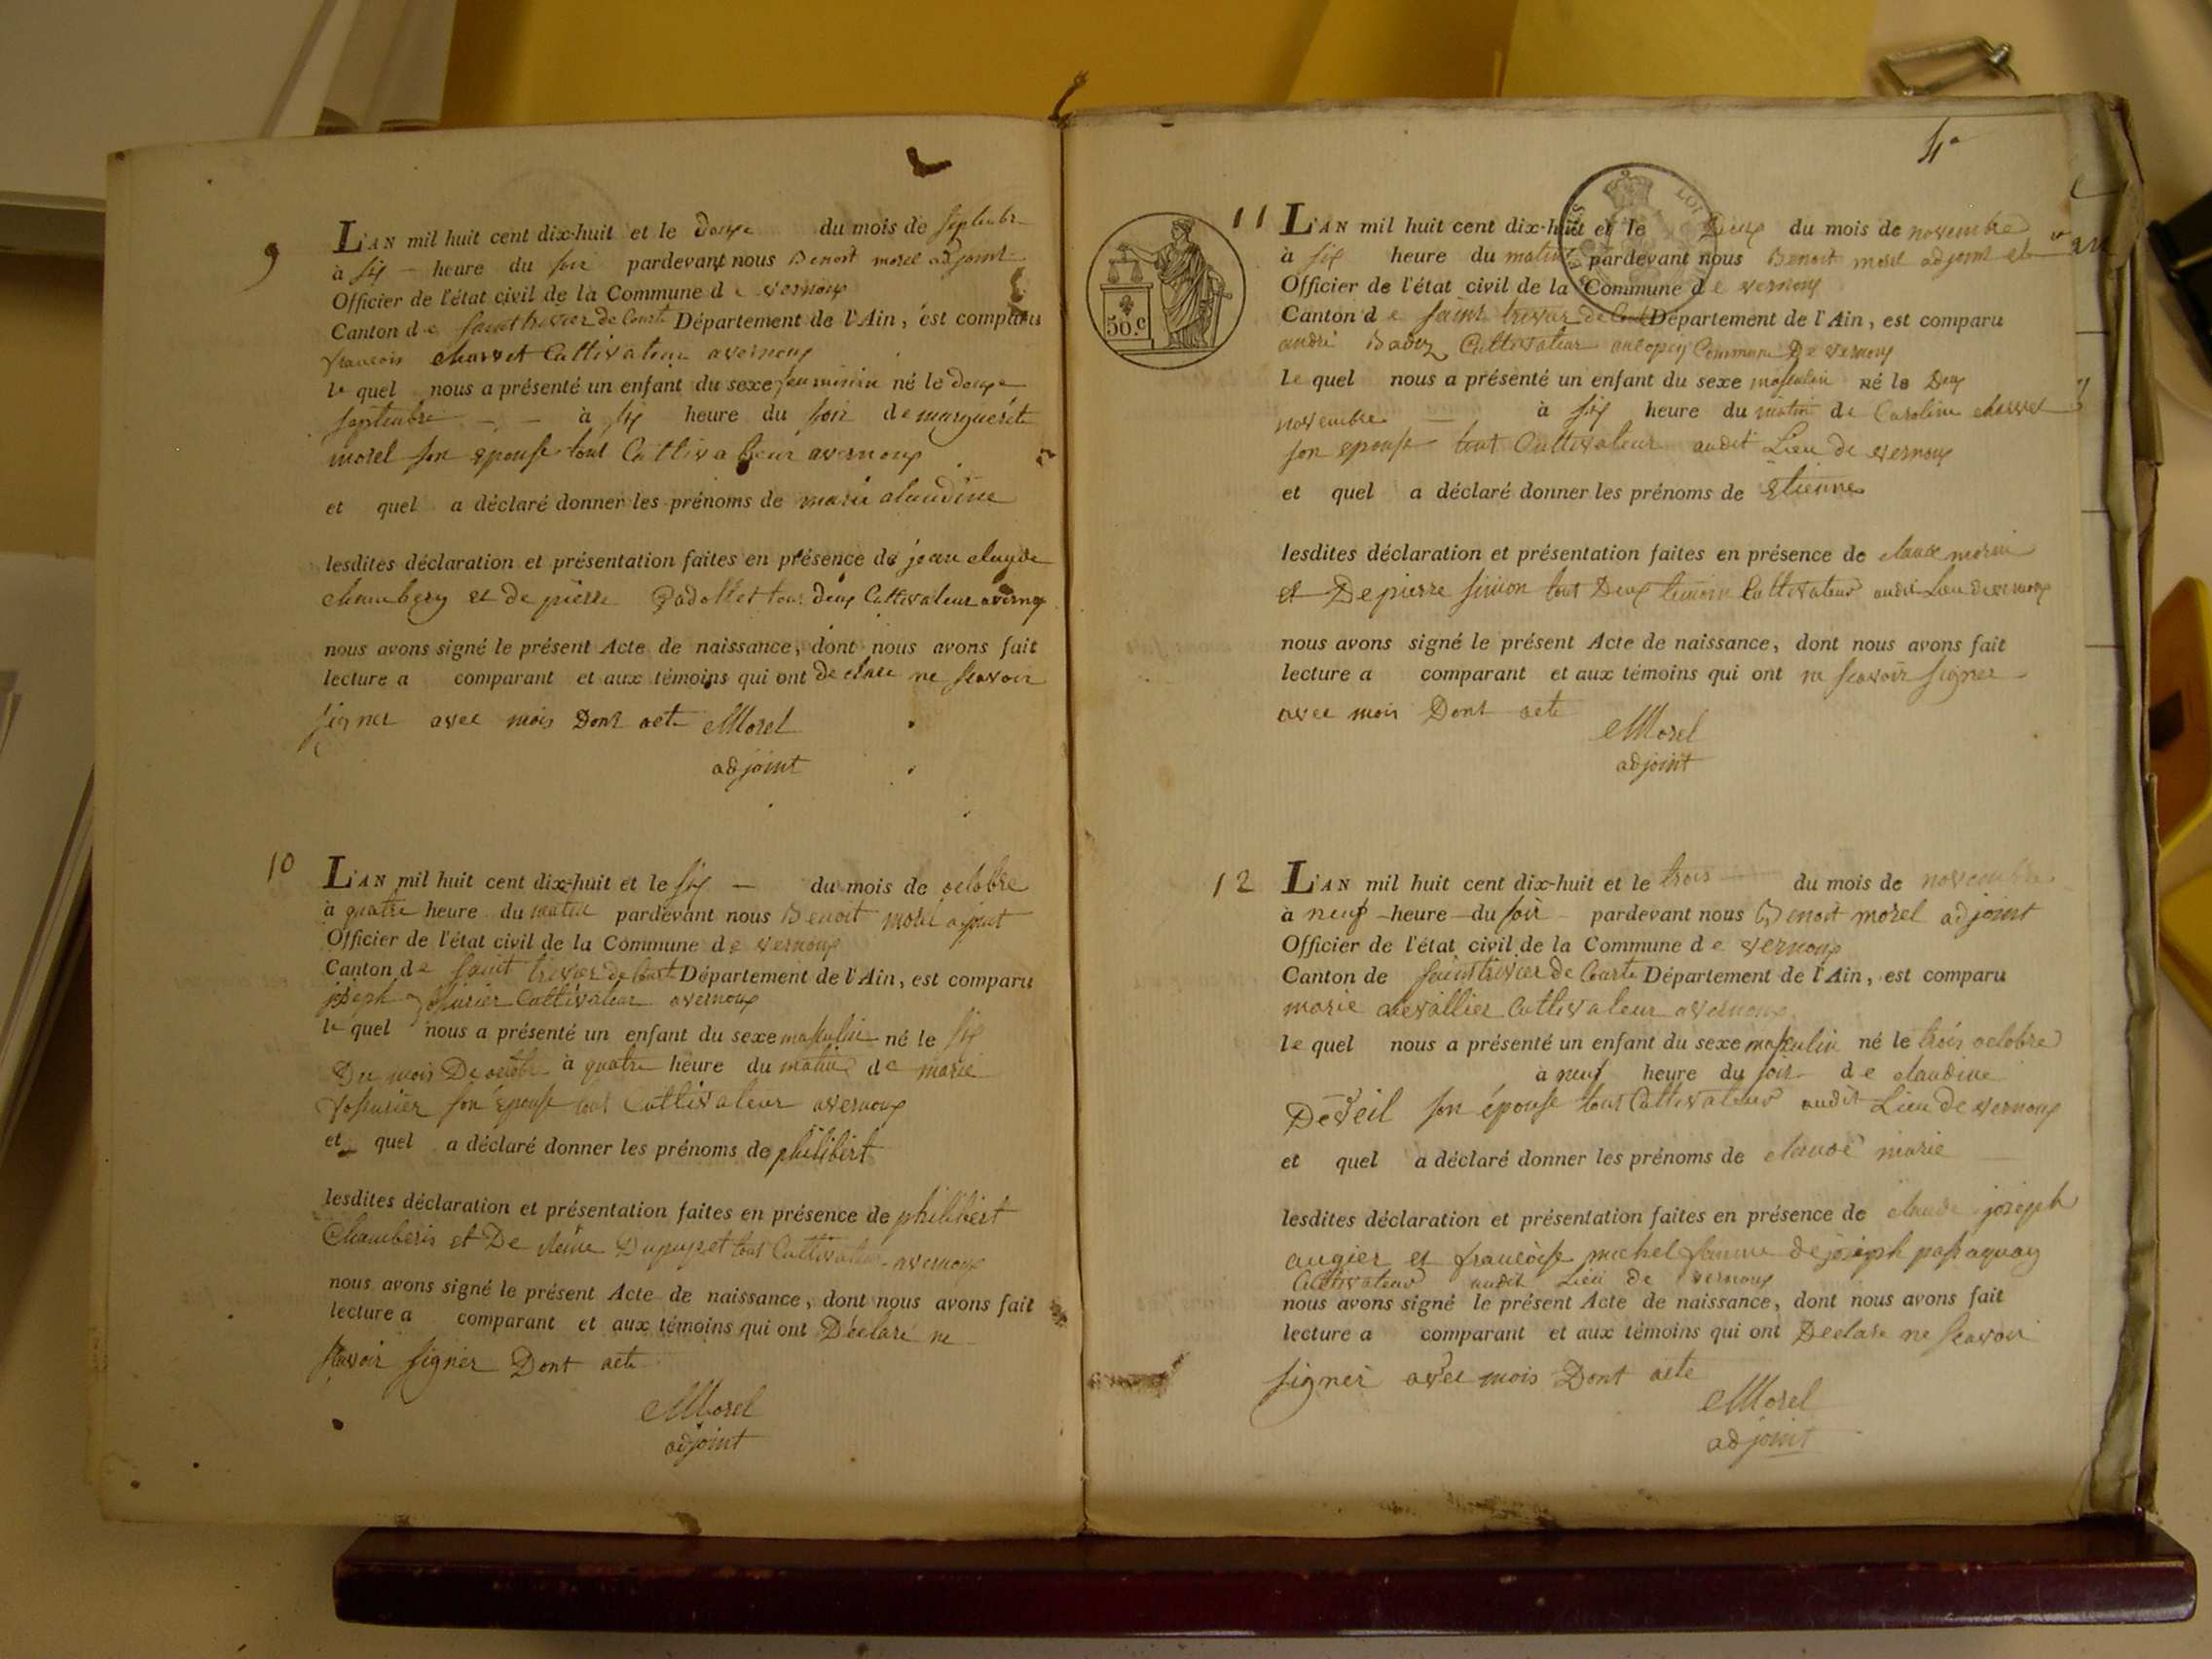 9
L'AN mil huit cent dix-huit et le douze du mois de septembre
à six heure du soir pardevant nous Benoit morel adjoint
Officier de l'état civil de la Commune de vernoux
Canton de saint trivier de Court Département de l'Ain, est comparu
francois charvet Cultivateur avernoux
le quel nous a présenté un enfant du sexe feuminin né le douze
septembre à six heure du soir de marguerit
morel son epouse tout Cultivateur avernoux
et quel a déclaré donner les prénoms de marie claudine
lesdites déclaration et présentation faites en présence de jean claude
chambery et de pierre tous deux Cultivateur avernox
nous avons signé le présent Acte de naissance, dont nous avons fait
lecture a comparant et aux témoins qui ont declare ne scavoir
signer avec mois Dont acte Morel
adjoint
10
L'AN mil huit cent dix-huit et le six du mois de octobre
à quatre heure du matin pardevant nous Benoit morel ajoint
Officier de l'état civil de la Commune de vernoux
Canton de saint trivier de Court Département de l'Ain, est comparu
joseph Cultivateur avernoux
le quel nous a présenté un enfant du sexe masculin né le six
Du mois De octobre à quatre heure du matin de marie
son Epouse tout Cultivateur avernoux
et quel a déclaré donner les prénoms de philibert
lesdites déclaration et présentation faites en présence de philibert
Chamberis et De Dupupet tout Cultivateur avernoux
nous avons signé le présent Acte de naissance, dont nous avons fait
lecture a comparant et aux témoins qui ont Déclaré ne
scavoir signer Dont acte
Morel
adjoint
4
50.c
11
L'AN mil huit cent dix-huit et le Deux du mois de novembre
à six heure du matin pardevant nous Benoit morel adjoint
Officier de l'état civil de la Commune de vernoux
Canton de saint trivier de Court Département de l'Ain, est comparu
andré Cultivateur Commune De vernoux
le quel nous a présenté un enfant du sexe masculin né le Deux
novembre à six heure du matin de Caroline charvet
son epouse tout Cultivateur audit Lieu de vernoux
et quel a déclaré donner les prénoms de Etienne
lesdites déclaration et présentation faites en présence de claude morin
et De pierre simon tout Deux temoin Cultivateur audit Lieu de vernoux
nous avons signé le présent Acte de naissance, dont nous avons fait
lecture a comparant et aux témoins qui ont ne scavoir signer
avec mois Dont acte
Morel
adjoint
12
L'AN mil huit cent dix-huit et le trois du mois de novembre
à neuf heure du soir pardevant nous Benoit morel adjoint
Officier de l'état civil de la Commune de vernoux
Canton de saint trivier de Courte Département de l'Ain, est comparu
marie chevallier Cultivateur avernoux
le quel nous a présenté un enfant du sexe masculin né le trois octobre
à neuf heure du soir de claudine
Deveil son épouse tout Cultivateur audit Lieu de vernoux
et quel a déclaré donner les prénoms de claude marie
lesdites déclaration et présentation faites en présence de claude joseph
augier et francoise michel famme de joseph passaquay
Cultivateur audit Lieu de vernoux
nous avons signé le présent Acte de naissance, dont nous avons fait
lecture a comparant et aux témoins qui ont Declare ne scavoir
signer avec mois Dont acte
Morel
adjoint